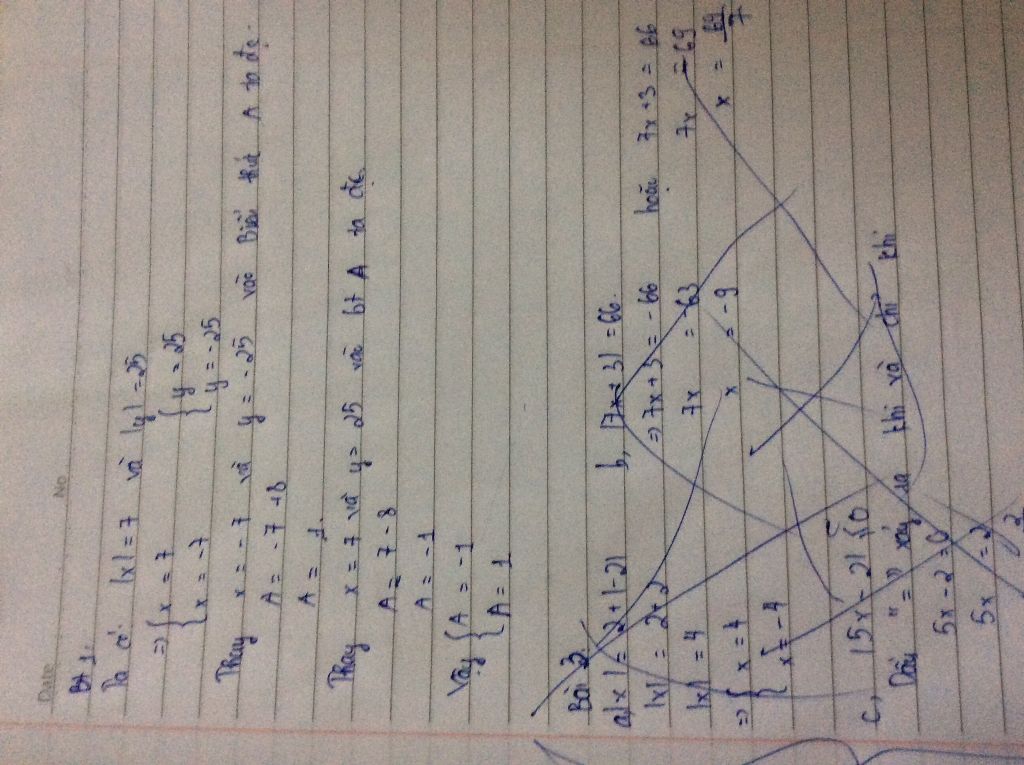 Date
No
Bt 1.
Ta có: |x| = 7 và |y| = 25
=> { x = 7 { y = 25
{ x = -7 { y = -25
Thay x = -7 và y = -25 vào Biểu thức A ta đc.
A = -7 + 8
A = 1.
Thay x = 7 và y = 25 vào bt A ta đc.
A = 7 - 8
A = -1
Vậy { A = -1
{ A = 1
Bài 2.
a, |x| = 2 + |-2| b, |7x + 3| = 66.
|x| = 2 + 2 => 7x + 3 = -66 hoặc 7x + 3 = 66
|x| = 4 7x = 63 7x = 69
=> { x = 4 x = -9 x = 69/7
{ x = -4
c, |5x - 2| ≤ 0
Dấu "=" xảy ra khi và chỉ khi
5x - 2 = 0
5x = 2
2